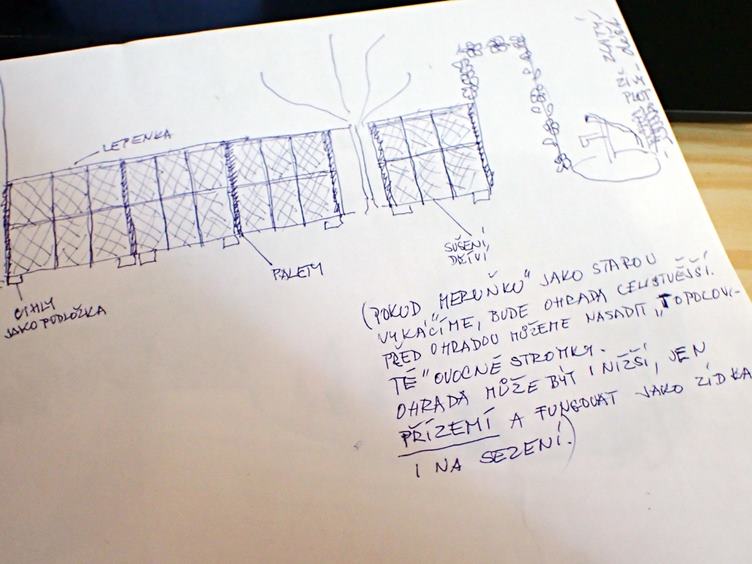 LEPENKA
CIHLY
JAKO PODLOŽKA
PALETY
SUŠENÍ
DŘÍVÍ
(POKUD "MERUŇKU" JAKO STAROU
VYKÁCÍME, BUDE OHRADA CELISTVĚJŠÍ.
PŘED OHRADOU MŮŽEME NASADIT „TOPOLOVI-
TÉ" OVOCNÉ STROMKY.
OHRADA MŮŽE BÝT I NIŽŠÍ, JEN
PŘÍZEMÍ A FUNGOVAT JAKO ZÍDKA
I NA SEZENÍ.)